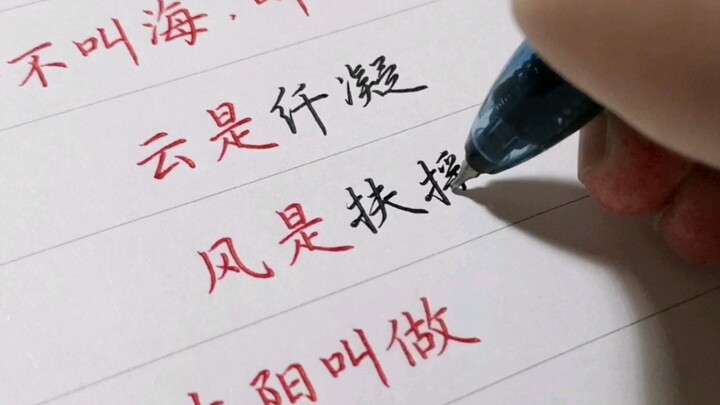 不叫海,
云是纤凝
风是扶摇
阳叫做